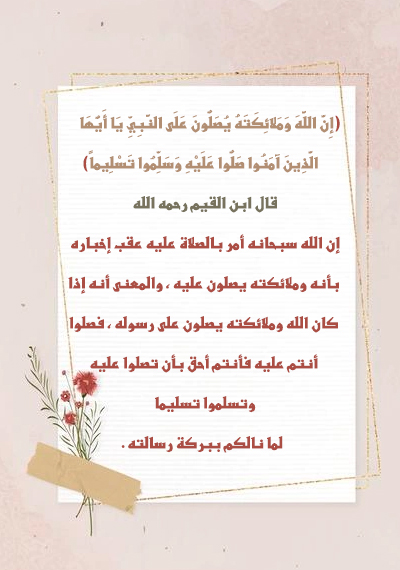 (إِنَّ اللَّهَ وَمَلَائِكَتَهُ يُصَلُّونَ عَلَى النَّبِيِّ يَا أَيُّهَا
الَّذِينَ آمَنُوا صَلُّوا عَلَيْهِ وَسَلِّمُوا تَسْلِيماً)
قال ابن القيم رحمه الله
إن الله سبحانه أمر بالصلاة عليه عقب إخباره
بأنه وملائكته يصلون عليه ، والمعنى أنه إذا
كان الله وملائكته يصلون على رسوله ، فصلوا
أنتم عليه فأنتم أحق بأن تصلوا عليه
وتسلموا تسليما
لما نالكم ببركة رسالته .